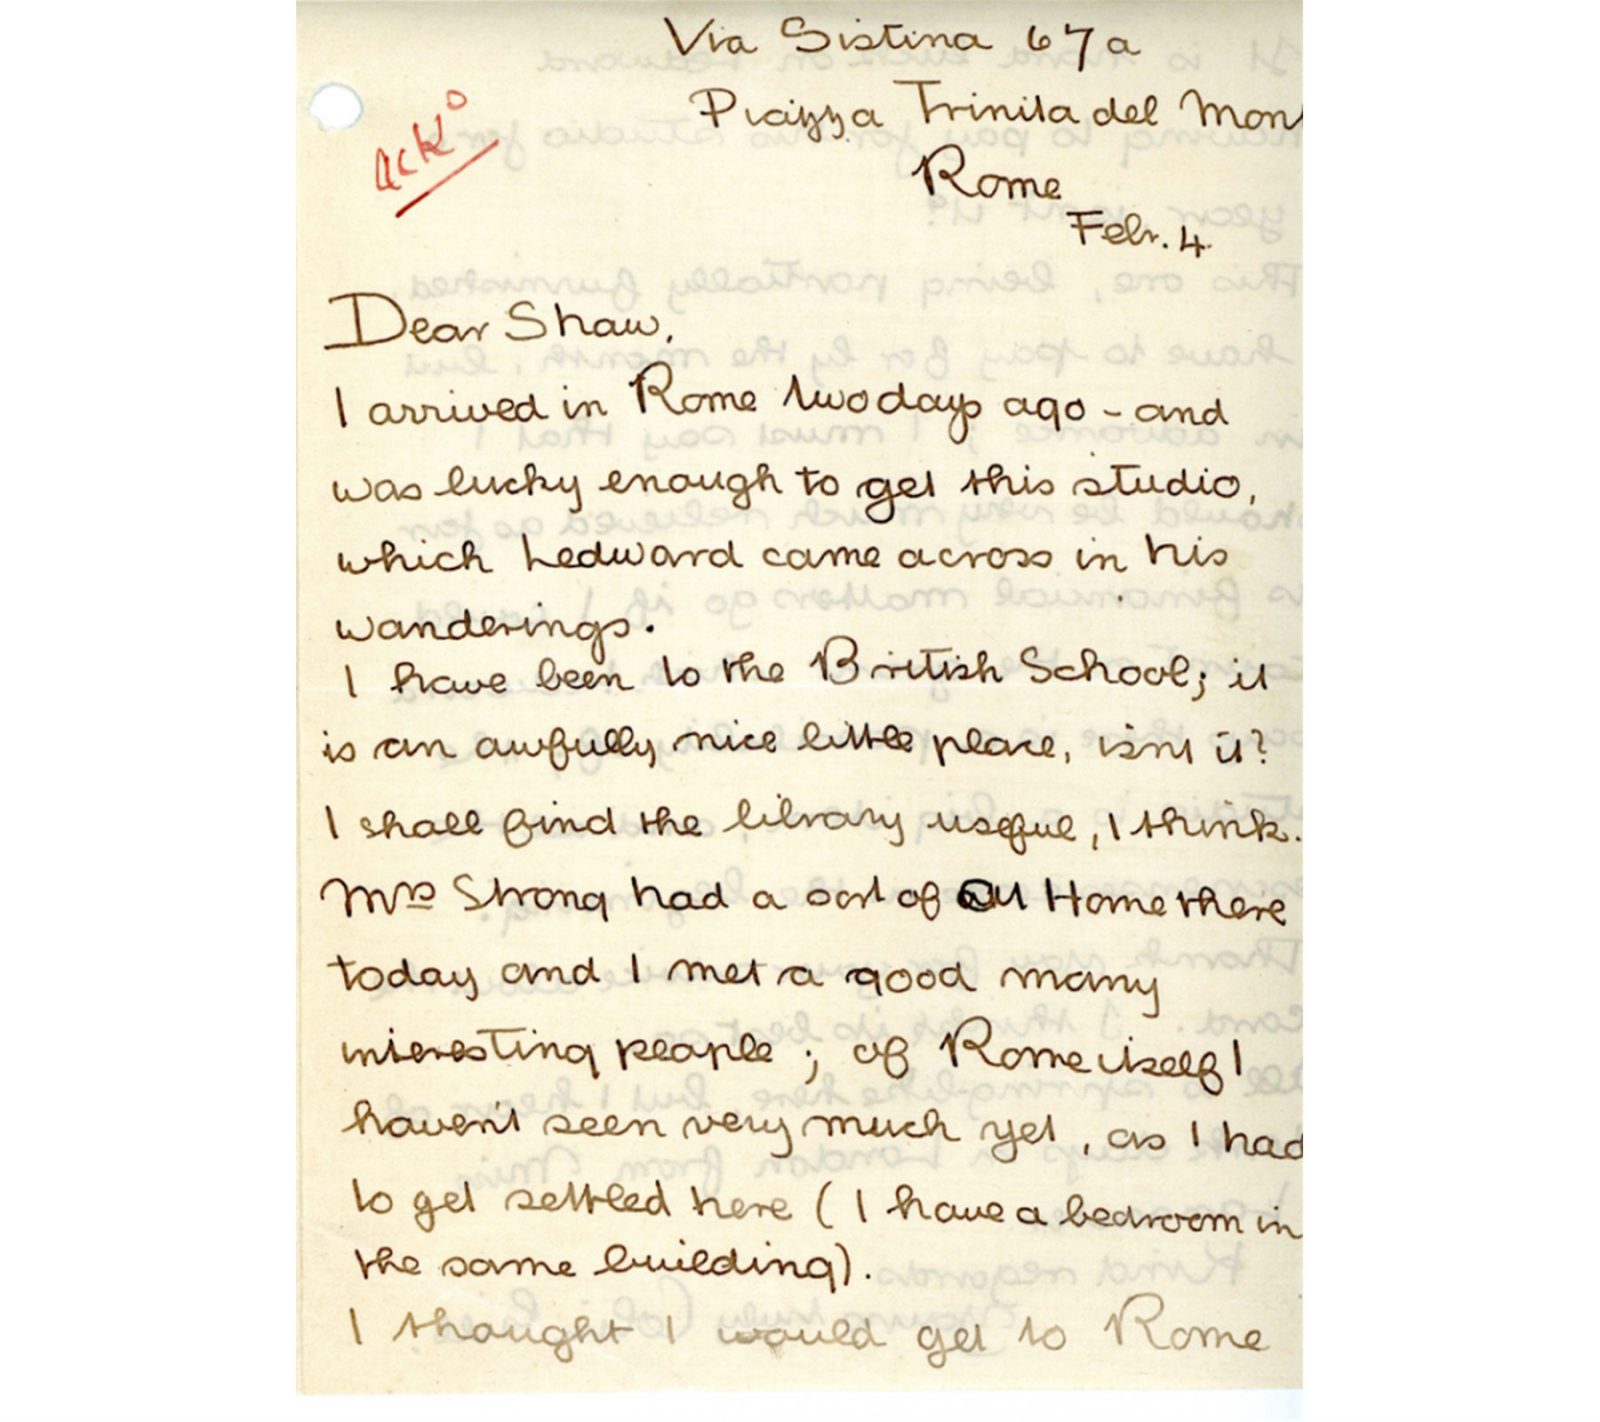 Via Sistina 67a
Piazza Trinita del Mon
Rome
Febr. 4.
ackd
Dear Shaw,
I arrived in Rome two days ago - and
was lucky enough to get this studio,
which Ledward came across in his
wanderings.
I have been to the British School; it
is an awfully nice little place, isnt it?
I shall find the library useful, I think.
Mrs Strong had a sort of At Home there
today and I met a good many
interesting people; of Rome itself I
haven't seen very much yet, as I had
to get settled here (I have a bedroom in
the same building).
I thought I would get to Rome